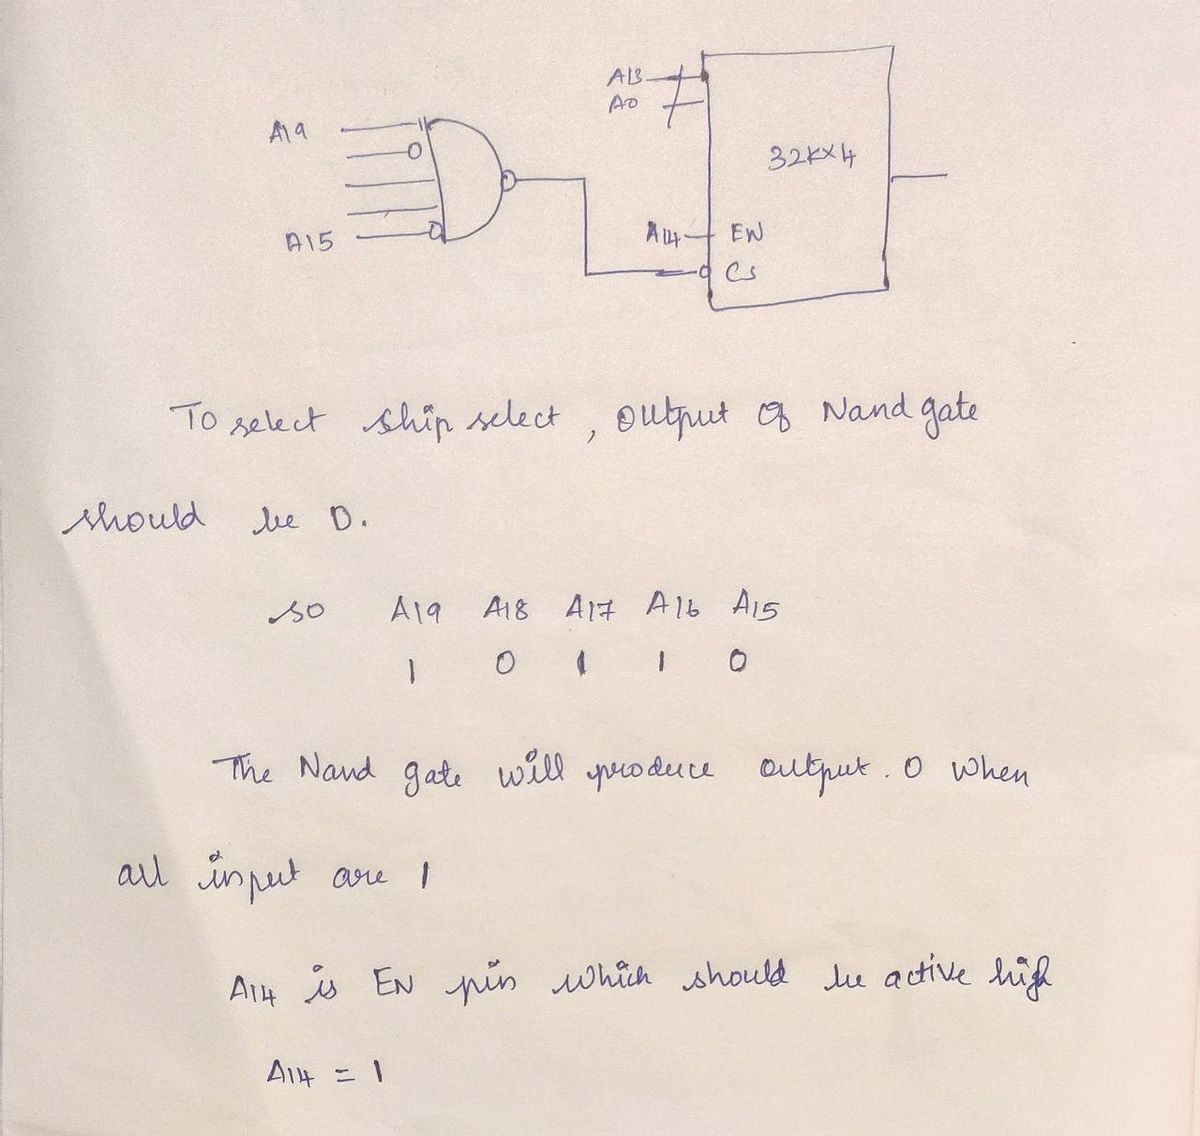 A13
A0
A19
32K×4
A15
A14
EN
CS
To select ship select, output of Nand gate
should be 0.
so A19 A18 A17 A16 A15
1 0 1 1 0
The Nand gate will produce output. 0 when
all input are 1
A14 is EN pin which should be active high
A14 = 1